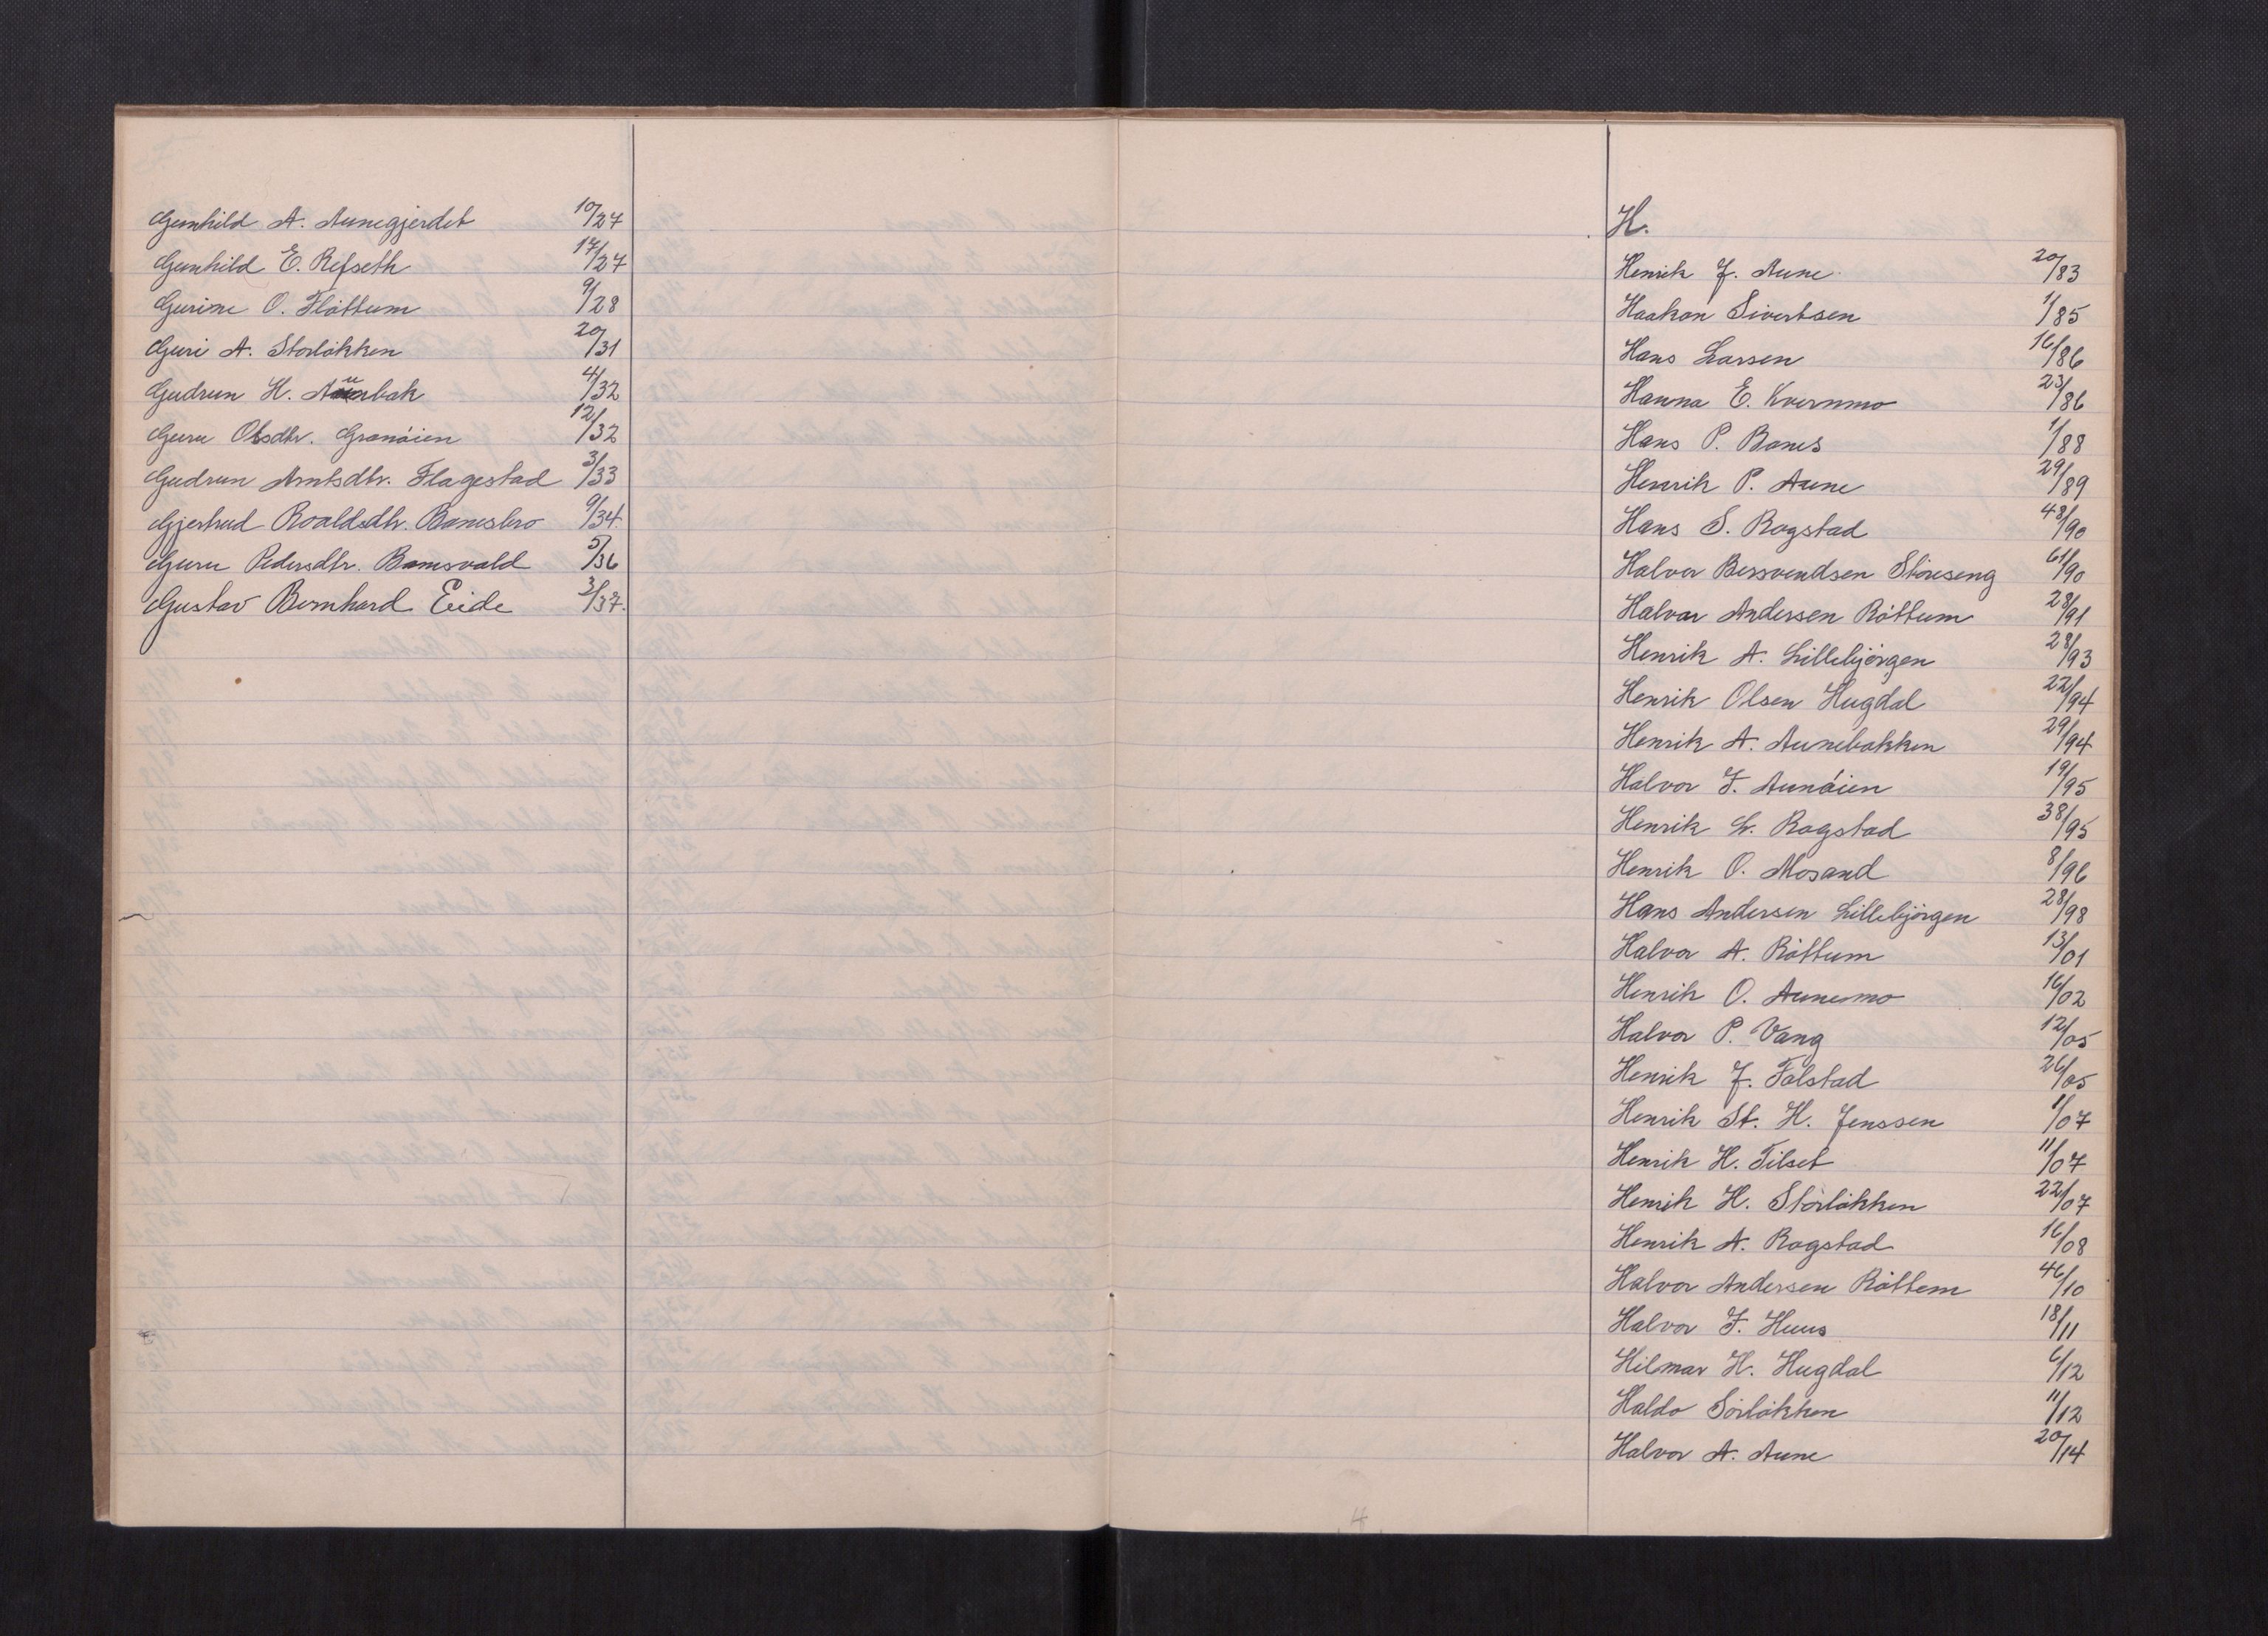 Gunhild A. Aunegjerdet 10/27
Gunhild E. Refseth 17/27
Gurine O. Flöttum 9/28
Guri A. Storlökken 20/31
Gudrun H. Aunbak 4/32
Guru Olsdtr. Granöien 12/32
Gudrun Arntsdtr. Flagestad 3/33
Gjertrud Roaldsdtr. Bonesbro 9/34.
Guru Pedersdtr. Bonesvald 5/36
Gustav Bernhard Eide 3/37.
H.
Henrik J. Aune 20/83
Haakon Sivertsen 1/85
Hans Larsen 16/86
Hanna E. Kvernmo 23/86
Hans P. Bones 1/88
Henrik P. Aune 29/89
Hans S. Rogstad 48/90
Halvor Bersvendsen Störeseng 61/90
Halvor Andersen Röttum 28/91
Henrik A. Lillebjörgen 28/93
Henrik Olsen Hugdal 22/94
Henrik A. Aunebakken 29/94
Halvor F. Aunöien 19/95
Henrik L. Rogstad 38/95
Henrik O. Mosand 8/96
Hans Andersen Lillebjörgen 28/98
Halvor A. Röttum 13/01
Henrik O. Aunemo 16/02
Halvor P. Vang 12/05
Henrik J. Folstad 26/05
Henrik St. H. Jenssen 1/07
Henrik H. Tilset 11/07
Henrik H. Storlökken 22/07
Henrik A. Rogstad 16/08
Halvor Andersen Röttem 46/10
Halvor F. Huus 18/11
Hilmar H. Hugdal 6/12
Haldo Sörlökken 11/12
Halvor A. Aune 20/14